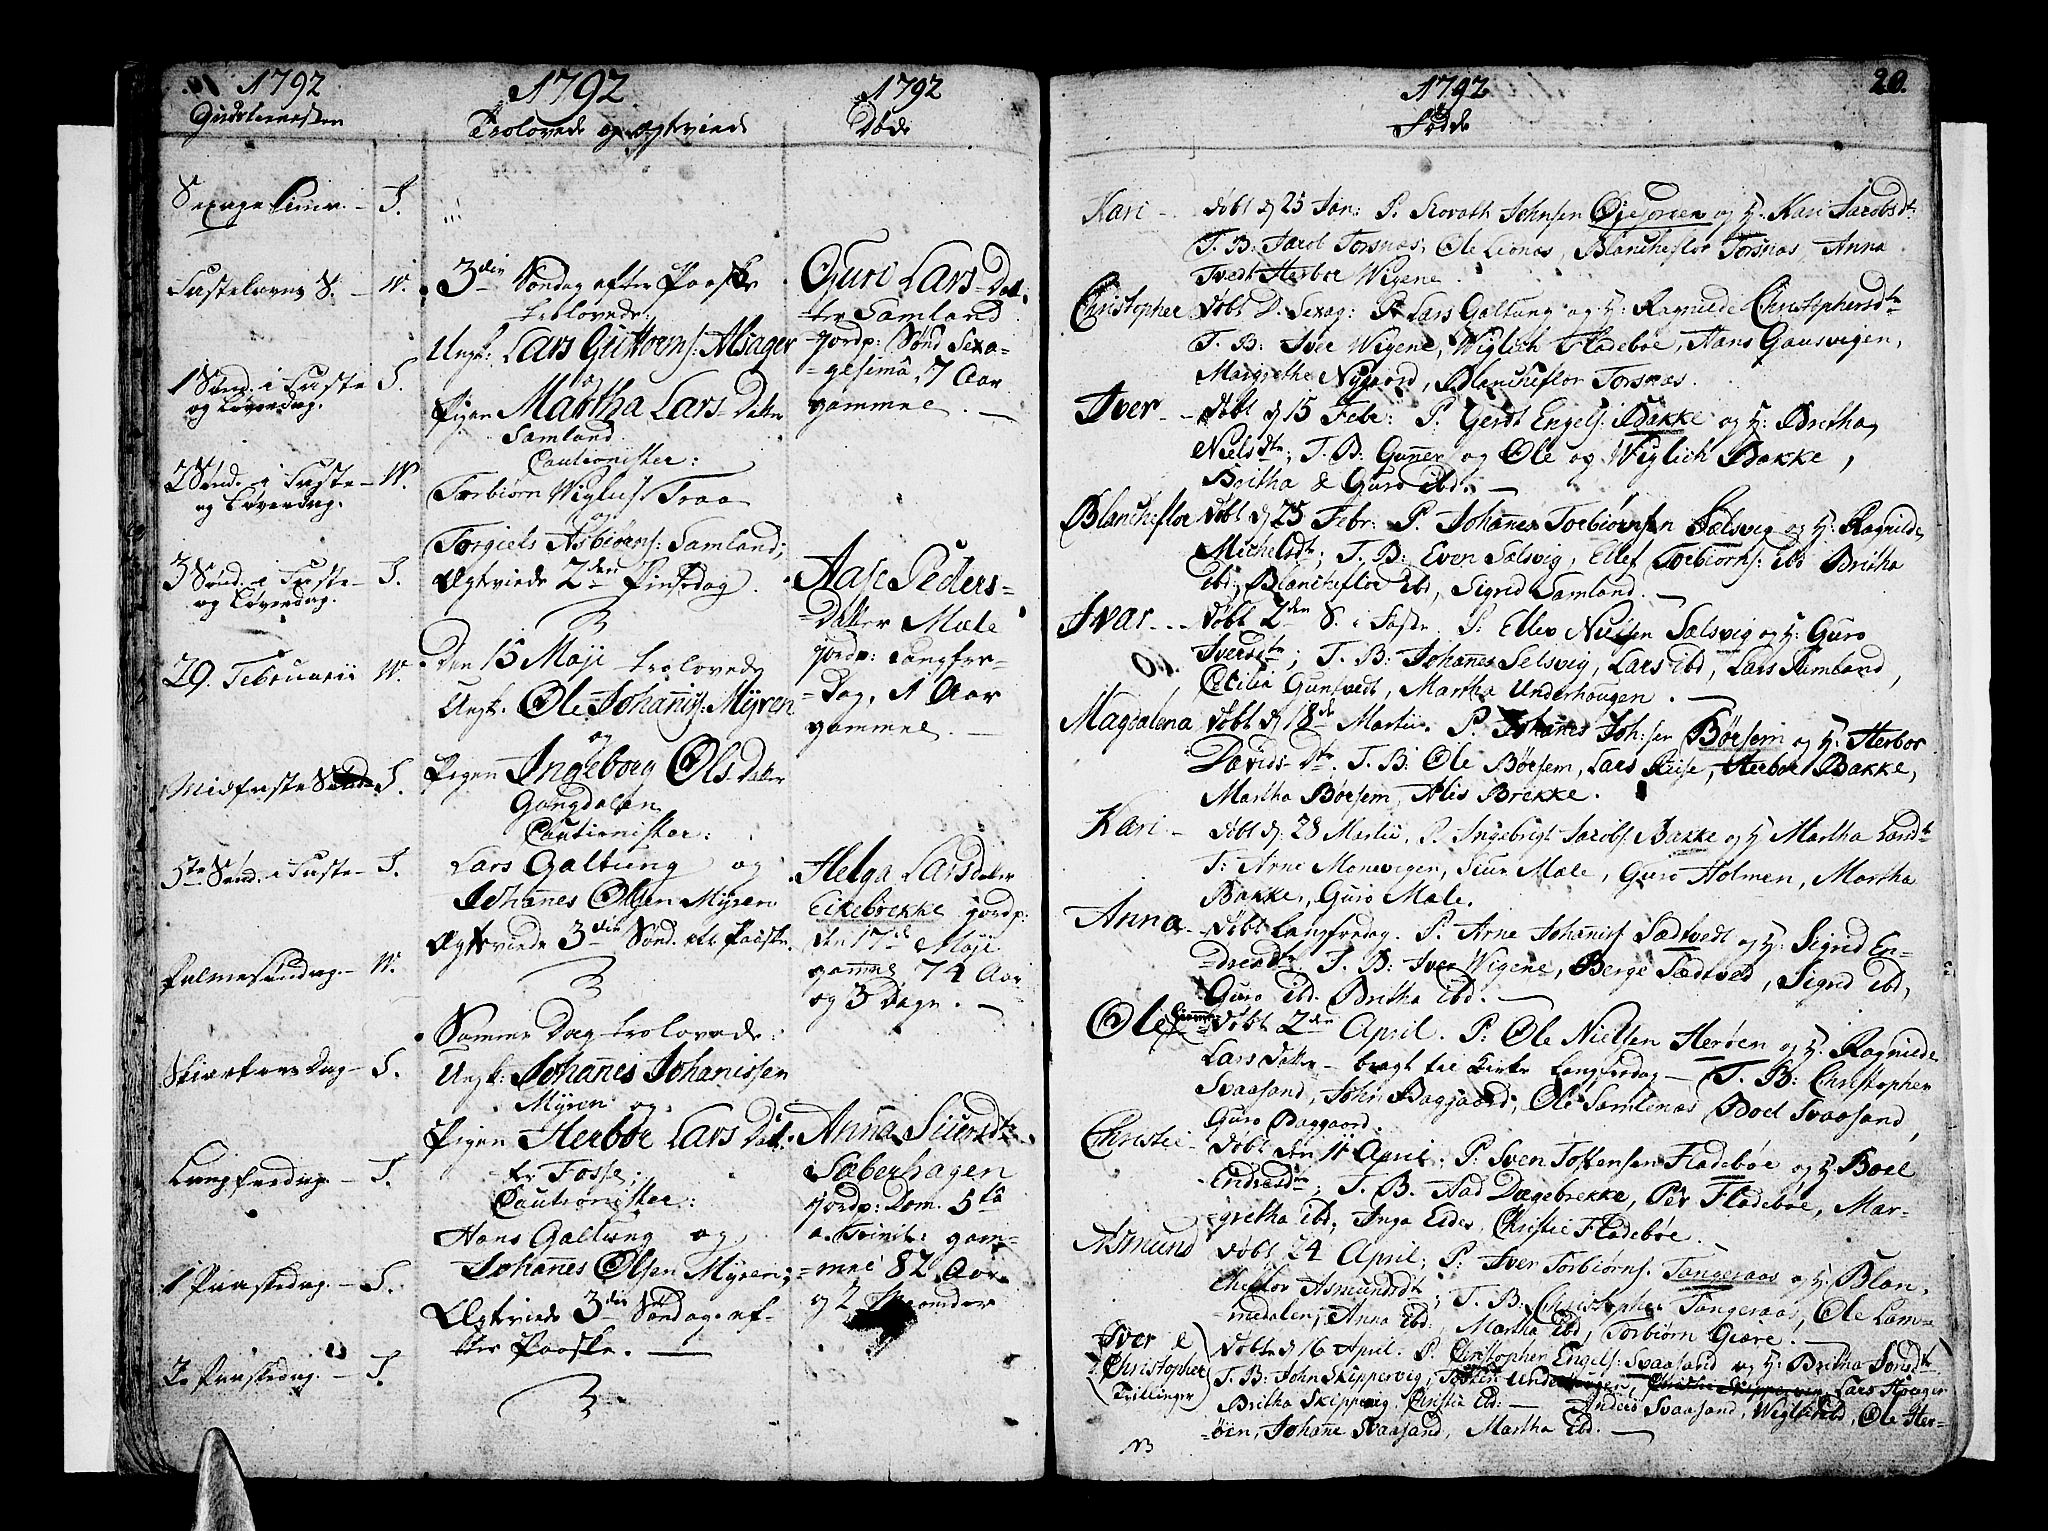 1792
Gudstienesten
Sexagesima. - S.
Fastelavns S. - W.
1 Sønd. i Faste S.
og Løverdag.
2 Sønd. i Faste - W.
og Løverdag.
3 Sønd. i Faste - S.
og Løverdag.
29. Februarii W.
Midfaste S.
5te Sønd. i Faste - S.
Palmesøndag. - W.
Skiærtorsdag - S.
Langfredag. - S.
1 Paaskedag. - S.
2. Paaskedag. - S.
1792
Trolovede og Ægtviede
3die Søndag efter Paaske
trolovede:
Ungk: Lars Guttorms: Alsager
og
Pigen Martha Lars Datter
Samland.
Cautionister:
Torbiørn Wiglus: Traa
og
Torgiels Asbiørns: Samland;
Ægtviede 2den Pinsedag.
Den 15 Maji trolovede
Ungk. Ole Johanis: Myren
og
Pigen Ingeborg Ols Datter
Gangdalen
Cautionister:
Lars Galtung og
Johannes Olsen Myren
Ægtviede 3die Sønd. eft. Paaske.
Samme Dag trolovede:
Ungk: Johanis Johanissen
Myren og
Pigen Herbor Lars Dat-
ter Fosse;
Cautionister:
Hans Galtung og
Johanes Olsen Myren;
Ægtviede 3die Søndag ef-
ter Paaske.
1792
Døde
Guri Lars Dat-
ter Samland
jordp: Sønd Sexa-
gesima, 7 Aar
gammel.
Aase Peders-
Datter Mæle
jordp: Langfre-
Dag, 1 Aar
gammel.
Helga Larsdatter
Eikebrekke jordp:
den 17de Maji
gamel 74 Aar
og 3 Dage.
Anna Siursdtr
Sæberhagen
jordp: Dom. 5ta
a. Trinit: gam-
mel 82 Aar
og 2 Maaneder
20.
1792
Fødde
Kari - Døbt d 25 Jan: P. Horvath Johnsen Øiesorden og H. Kari Jacobsdtr
T. B: Jacob Torsnæs, Ole Lionæs, Blancheflor Torsnæs, Anna
Tvedt Herbor Wigene.
Christopher Døbt D. Sexag: P. Lars Galtung og H: Ragnilde Christophersdtr
T. B: Iver Wigene, Wiglich Fladebøe, Hans Gausvigen,
Margrethe Nygaard, Blancheflor Torsnæs.
Iver - Døbt d 15 Febr: P: Gerdt Engels: Bakke og H: Britha
Nielsdtr; T. B: Guner og Ole og Wiglich Bakke,
Britha & Guro ibd.
Blancheflor Døbt d 25 Febr: P. Johanes Torbiørnsen Sælsvig og H: Ragnilde
Michelsdtr; T. B: Even Sælsvig, Ellef Torbiørns: ibd Britha
ibd, Blancheflor ibd, Sigrid Samland.
Ivar - Døbt 2den S. i Faste. P: Ellev Nielsen Sælsvig og H: Guro
Iversdtr; T. B: Johanes Selsvig, Lars ibd, Lars Samland,
Cecilia Guntvedt, Martha Underhougen.
Magdalena Døbt d 18de Martii. P. Johanes Joh:sen Børsem og H: Herbor
Davids-dtr. T. B: Ole Børsem, Lars Skeise, Herbor Bakke,
Martha Børsem, Alis Brekke.
Kari - Døbt d. 28 Martii, P. Ingebrigt Jacobs: Bakke og H Martha Larsdtr
T: Arne Monevigen, Siur Mæle, Guro Holmen, Martha
Bakke, Guro Mæle.
Anna - Døbt Langfredag. P. Arne Johanis: Sædtvedt og H: Sigrid En-
dresdtr, T. B: Iver Wigene, Berge Sædtved, Sigrid ibd,
Guro ibd. Britha ibd.
Ole Døbt 2den April. P: Ole Nielsen Herøen og H: Ragnilde
Lars Datter - bragt til Kirke Langfredag - T. B: Christopher
Svaasand, John Baggaard, Ole Samlenæs Boel Svaasand,
Guro Baggaard.
Christie - Døbt den 11 April; P: Sven Tostensen Fladebøe og H: Boel
Endresdtr; T. B. Aad Dægebrekke, Per Fladebøe, Mar-
gretha ibd, Inga Eides, Christie Fladebøe.
Asmund Døbt 24 April; P: Iver Torbiørns: Tangeraas og H: Blan-
cheflor Asmundsdtr; T. B: Christopher Tangeraas, Ole Lam-
medalen, Anna ibd, Martha ibd, Torbiørn Giære.
Iver & Christopher Tvillinger Døbt d 16 April. P. Christopher Engels: Svaasand og H: Britha Jonsdtr
T. B: John Skippervig, Tosten Underhougen, Lars Houger
Britha Skippervig, Christie ibd: - Anders Svaasand, Wiglich ibd, Ole Her-
øen, Johane Svaasand, Martha ibd.
NB